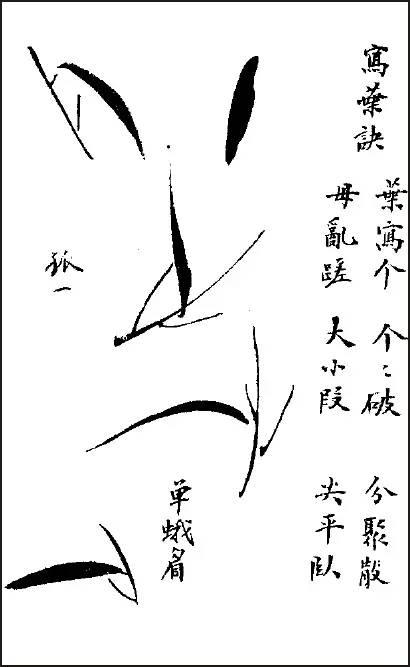 寫葉訣
葉寫个 个〻破 分聚散
毋亂蹉 大小段 尖平臥
单蛾眉
孤一